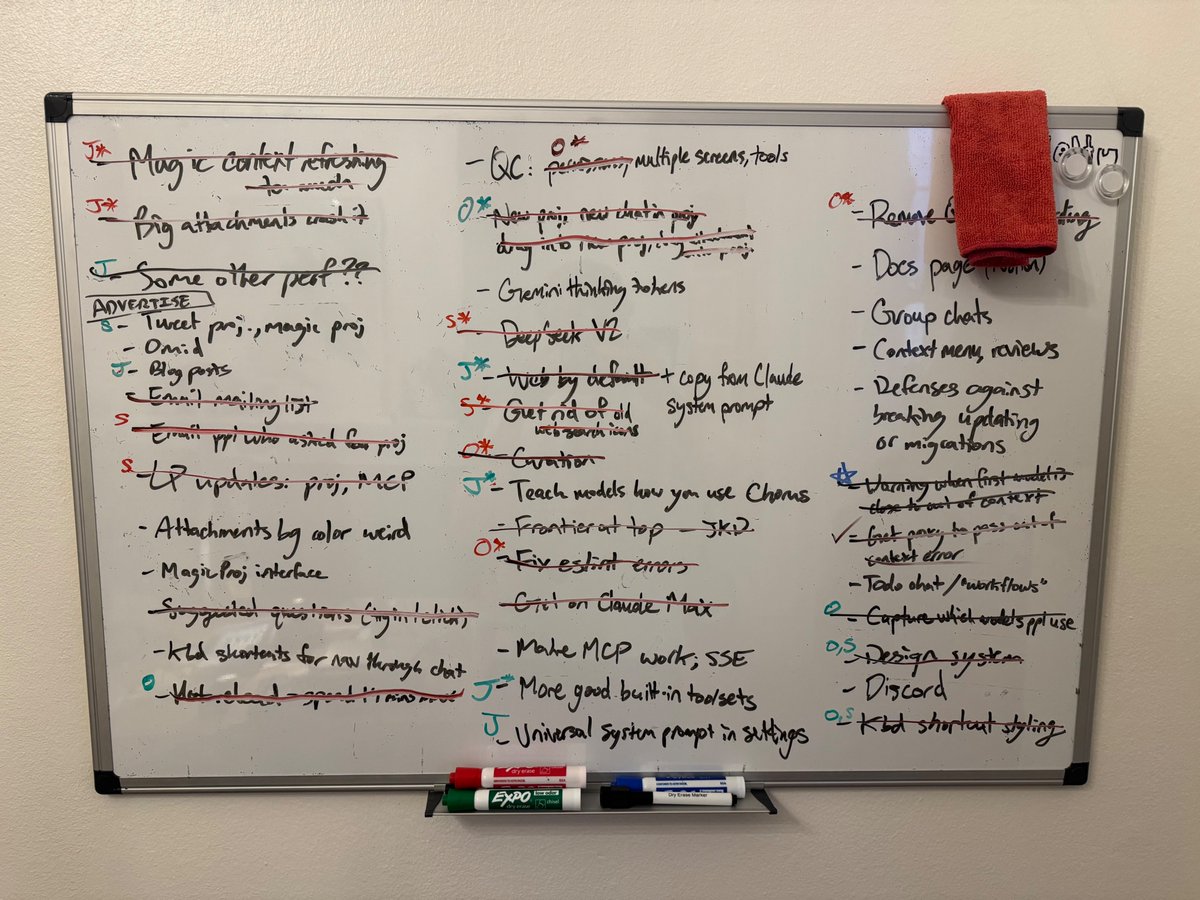 J* - Magic context refreshing
to much
J* - Big attachments crash it
J - Some other perf ??
ADVERTISE
S - Tweet proj., magic proj
- Omid
J - Blog posts
- Email mailing list
S - Email ppl who asked for proj
S - LP updates: proj, MCP
- Attachments bg color weird
- Magic Proj interface
- Suggested questions
- Kbd shortcuts for nav through chat
O -
O*
- QC: permissions, multiple screens, tools
O* - New proj, new chat in proj
drag into new proj, drag
- Gemini thinking tokens
S* - DeepSeek V2
J* - Web by default + copy from Claude
system prompt
S* - Get rid of old
web search icons
O* - Curation
J* - Teach models how you use Chorus
- Frontier at top - JKD
O* - Fix eslint errors
- Get on Claude Max
- Make MCP work, SSE
J* - More good built-in toolsets
J - Universal system prompt in settings
O* - Remove
- Docs page
- Group chats
- Context menu, reviews
- Defenses against
breaking updating
or migrations
☆ - Warning when first model is
close to out of context
✓ - Get proxy to pass out of
context error
- Todo chat / "workflows"
O - Capture which models ppl use
O,S - Design system
- Discord
O,S - Kbd shortcut styling
dry erase
EXPO
low odor
dry erase
chisel
Dry Erase Marker